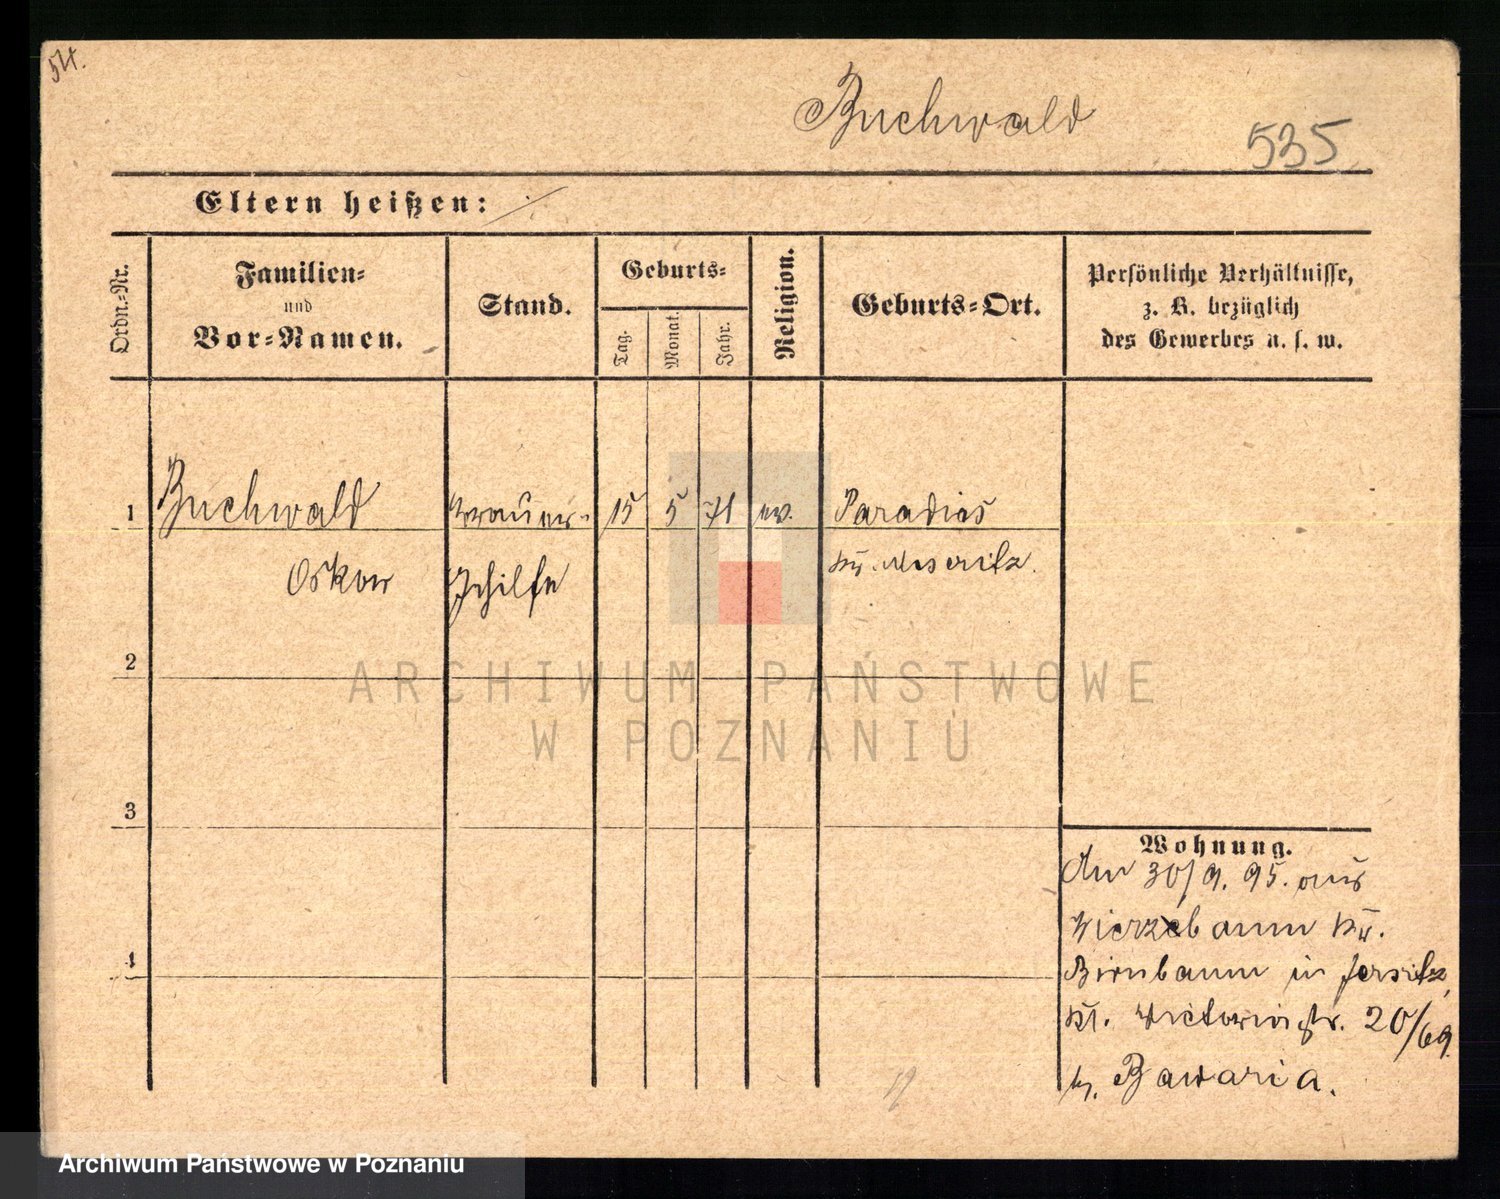 54.
Buchwald
535
Eltern heißen:
Ordn.-Nr.
Familien-
und
Vor-Namen.
Stand.
Geburts-
Tag.
Monat.
Jahr.
Religion.
Geburts-Ort.
Persönliche Verhältnisse,
z. B. bezüglich
des Gewerbes u. s. w.
1 Buchwald Brauer- 15 5 71 ev. Paradies
Oskar Gehilfe Kr. Meseritz.
2
3
4
Wohnung.
Am 30/9. 95. aus
Wierzebaum Kr.
Birnbaum in Jersitz,
Kl. Victoriastr. 20/69.
b. Bawaria.
ARCHIWUM PAŃSTWOWE
W POZNANIU
Archiwum Państwowe w Poznaniu